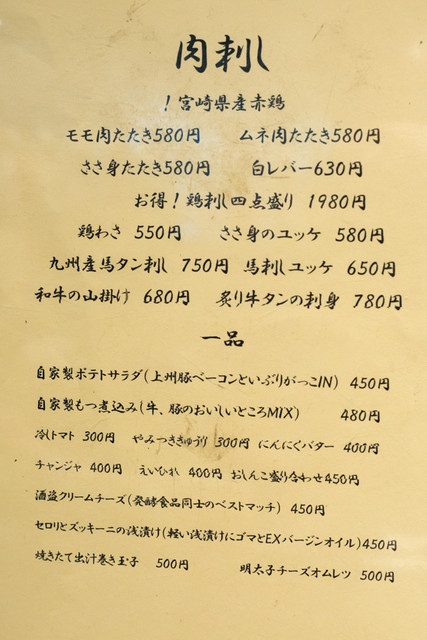 肉刺し
！宮崎県産赤鶏
モモ肉たたき580円　ムネ肉たたき580円
ささ身たたき580円　白レバー630円
お得！鶏刺し四点盛り 1980円
鶏わさ 550円　ささ身のユッケ 580円
九州産馬タン刺し 750円　馬刺しユッケ 650円
和牛の山掛け 680円　炙り牛タンの刺身 780円
一品
自家製ポテトサラダ(上州豚ベーコンといぶりがっこIN) 450円
自家製もつ煮込み(牛、豚のおいしいところMIX) 480円
冷しトマト 300円　やみつききゅうり 300円　にんにくバター 400円
チャンジャ 400円　えいひれ 400円　おしんこ盛り合わせ450円
酒盗クリームチーズ(発酵食品同士のベストマッチ) 450円
セロリとズッキーニの浅漬け(軽い浅漬けにゴマとEXバージンオイル)450円
焼きたて出汁巻き玉子 500円　明太子チーズオムレツ 500円